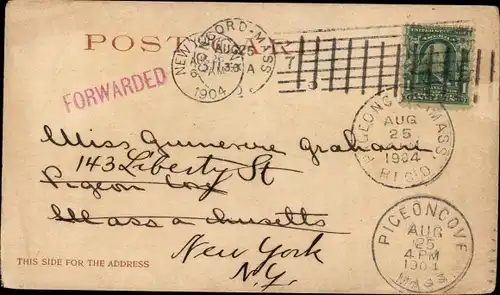 POSTAL CARD
NEW BEDFORD-MASS
AUG 25
1904
7
FORWARDED
PIGEONCOVE, MASS
AUG
25
1904
REC'D.
Miss Guinevere Graham
143 Liberty St
Pigeon Cove
Massachusetts
New York
N.Y.
PIGEONCOVE
AUG
25
4PM
1904
MASS.
THIS SIDE FOR THE ADDRESS